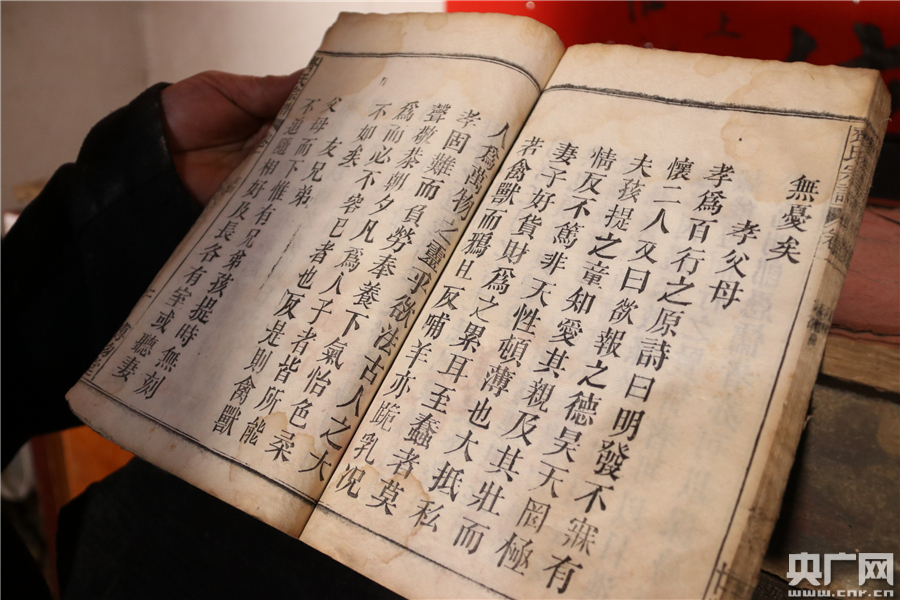 無憂矣
孝父母
孝爲百行之原詩曰明發不寐有
懷二人又曰欲報之德昊天罔極
夫孩提之童知愛其親及其壯而
情反不篤非天性頓薄也大抵私
妻子好貨財爲之累耳至蠢者莫
若禽獸而鴉且反哺羊亦跪乳况
人爲萬物之靈乎欲法古人之大
孝固難而負勞奉養下氣怡色柔
聲敬恭朝夕凡爲人子者皆所能
爲而必不容已者也反是則禽獸
不如矣
友兄弟
父母而下惟有兄弟孩提時無刻
不追隨相好及長各有室或聽妻
氏宗譜
上
央广网
www.cnr.cn